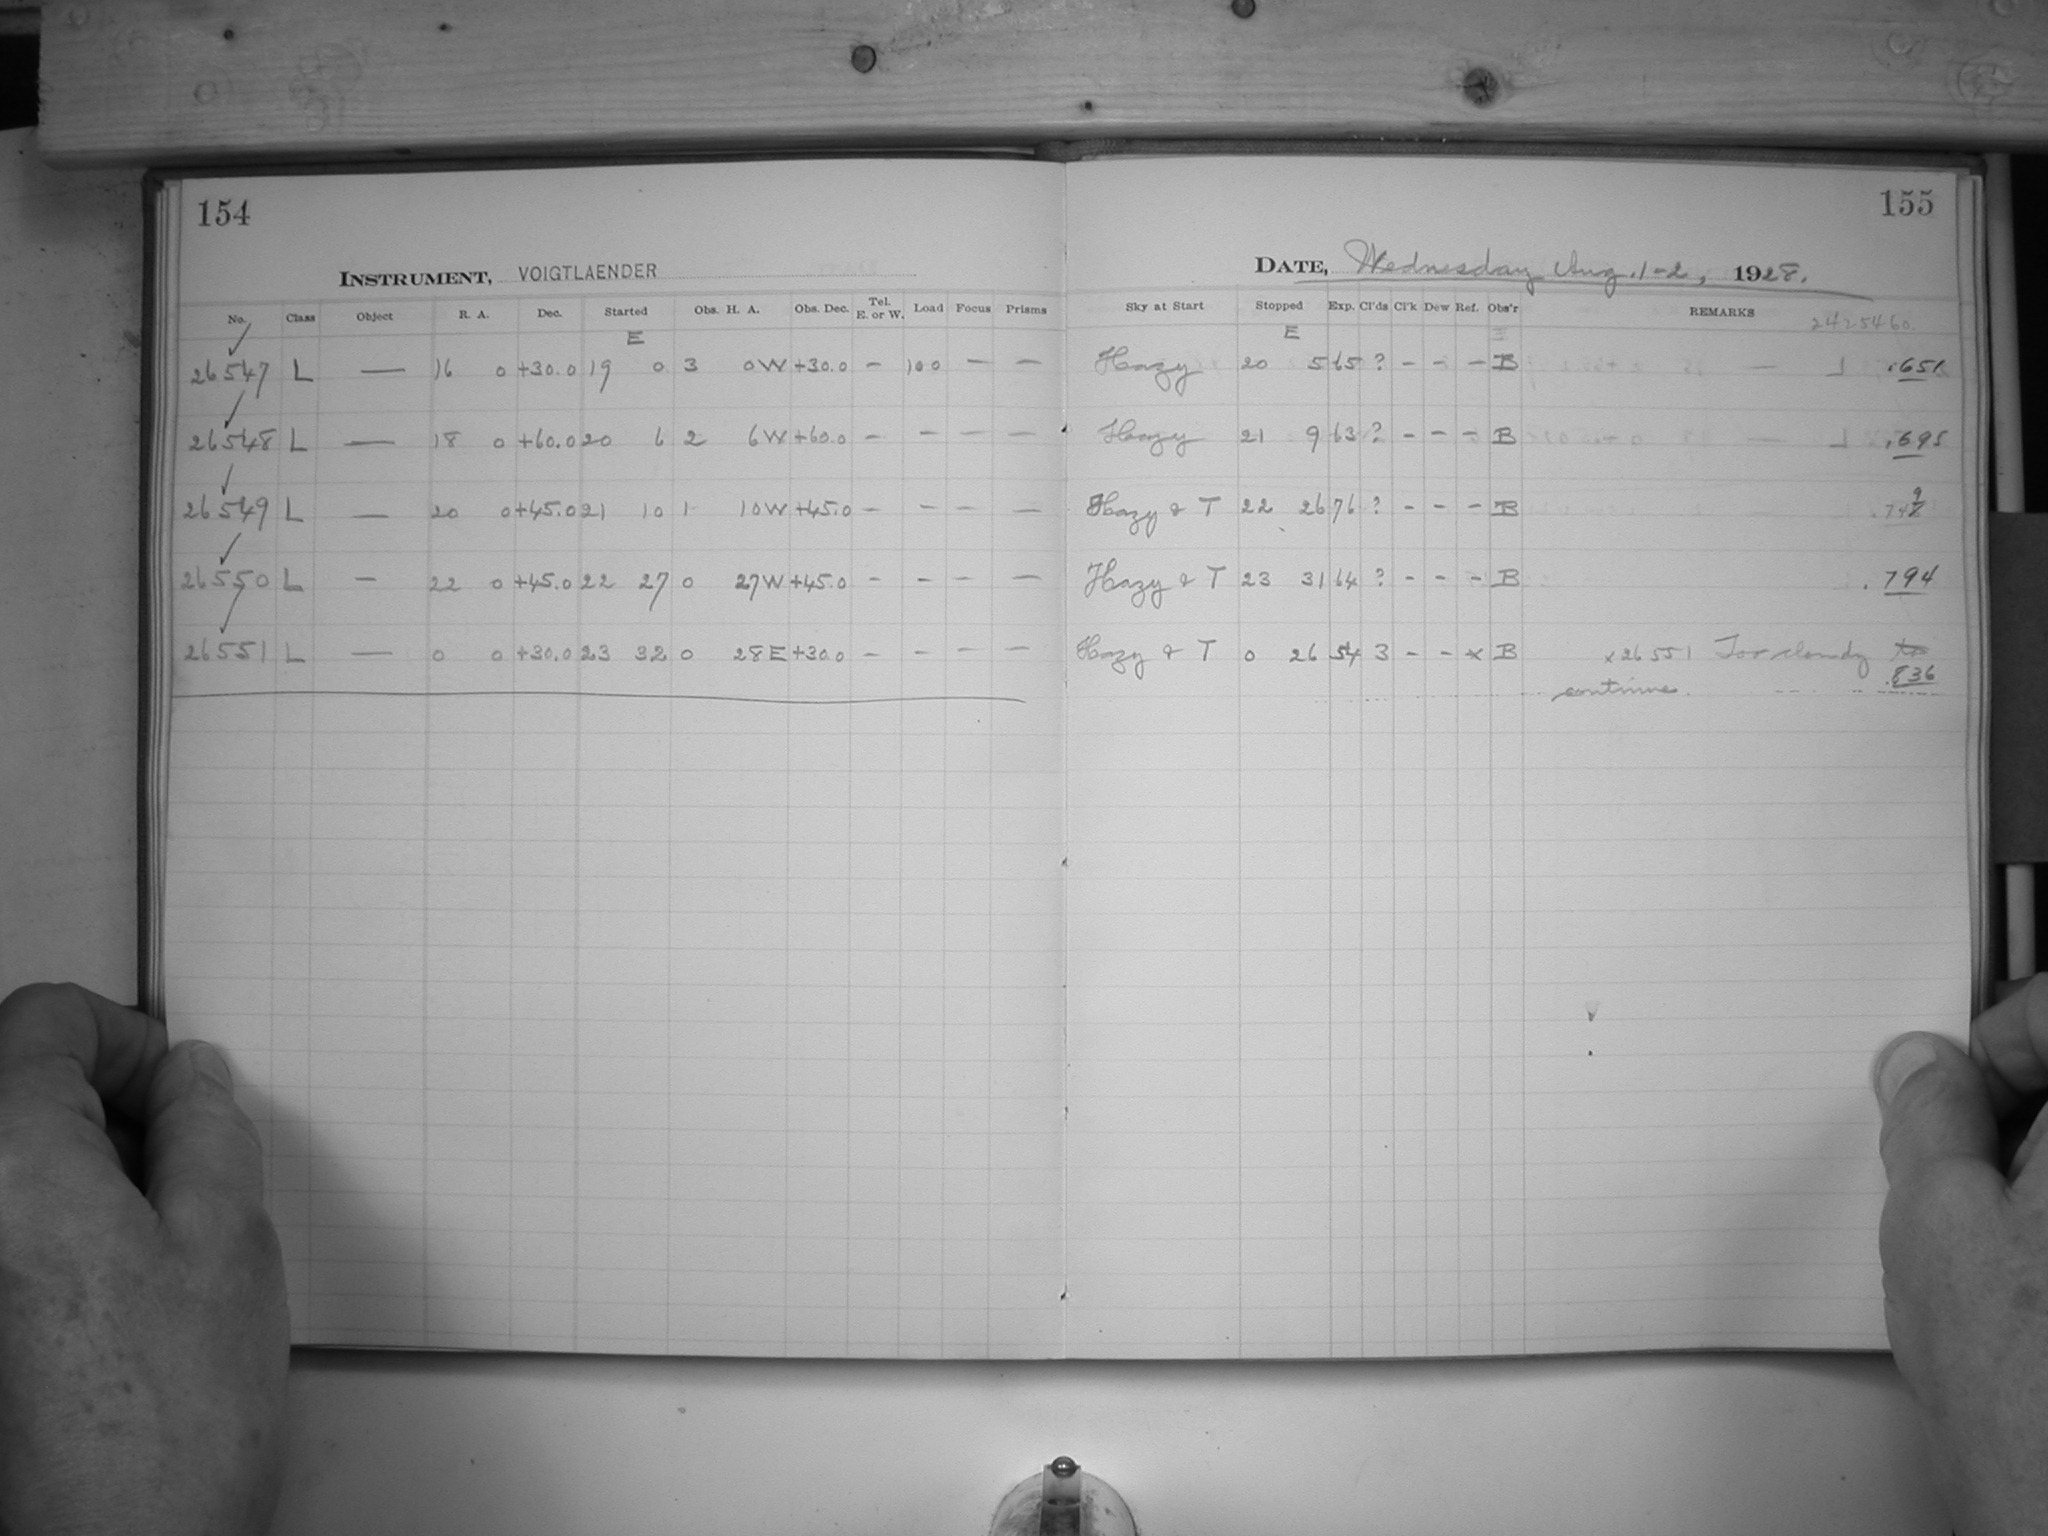 154
INSTRUMENT, VOIGTLAENDER
No. Class Object R. A. Dec. Started Obs. H. A. Obs. Dec. Tel. E. or W. Load Focus Prisms
E
26547 L — 16 0 +30.0 19 0 3 0W +30.0 - 100 - -
26548 L — 18 0 +60.0 20 6 2 6W +60.0 - - - -
26549 L — 20 0 +45.0 21 10 1 10W +45.0 - - - -
26550 L — 22 0 +45.0 22 27 0 27W +45.0 - - - -
26551 L — 0 0 +30.0 23 32 0 28E +30.0 - - - -
155
DATE, Wednesday Aug. 1-2, 1928.
Sky at Start Stopped Exp. Cl'ds Cl'k Dew Ref. Obs'r REMARKS
2425460.
E
Hazy 20 5 65 ? - - - B .651
Hazy 21 9 63 ? - - - B .695
Hazy & T 22 26 76 ? - - - B .749
Hazy & T 23 31 64 ? - - - B .794
Hazy & T 0 26 54 3 - - x B x26551 Too cloudy to
continue. .836